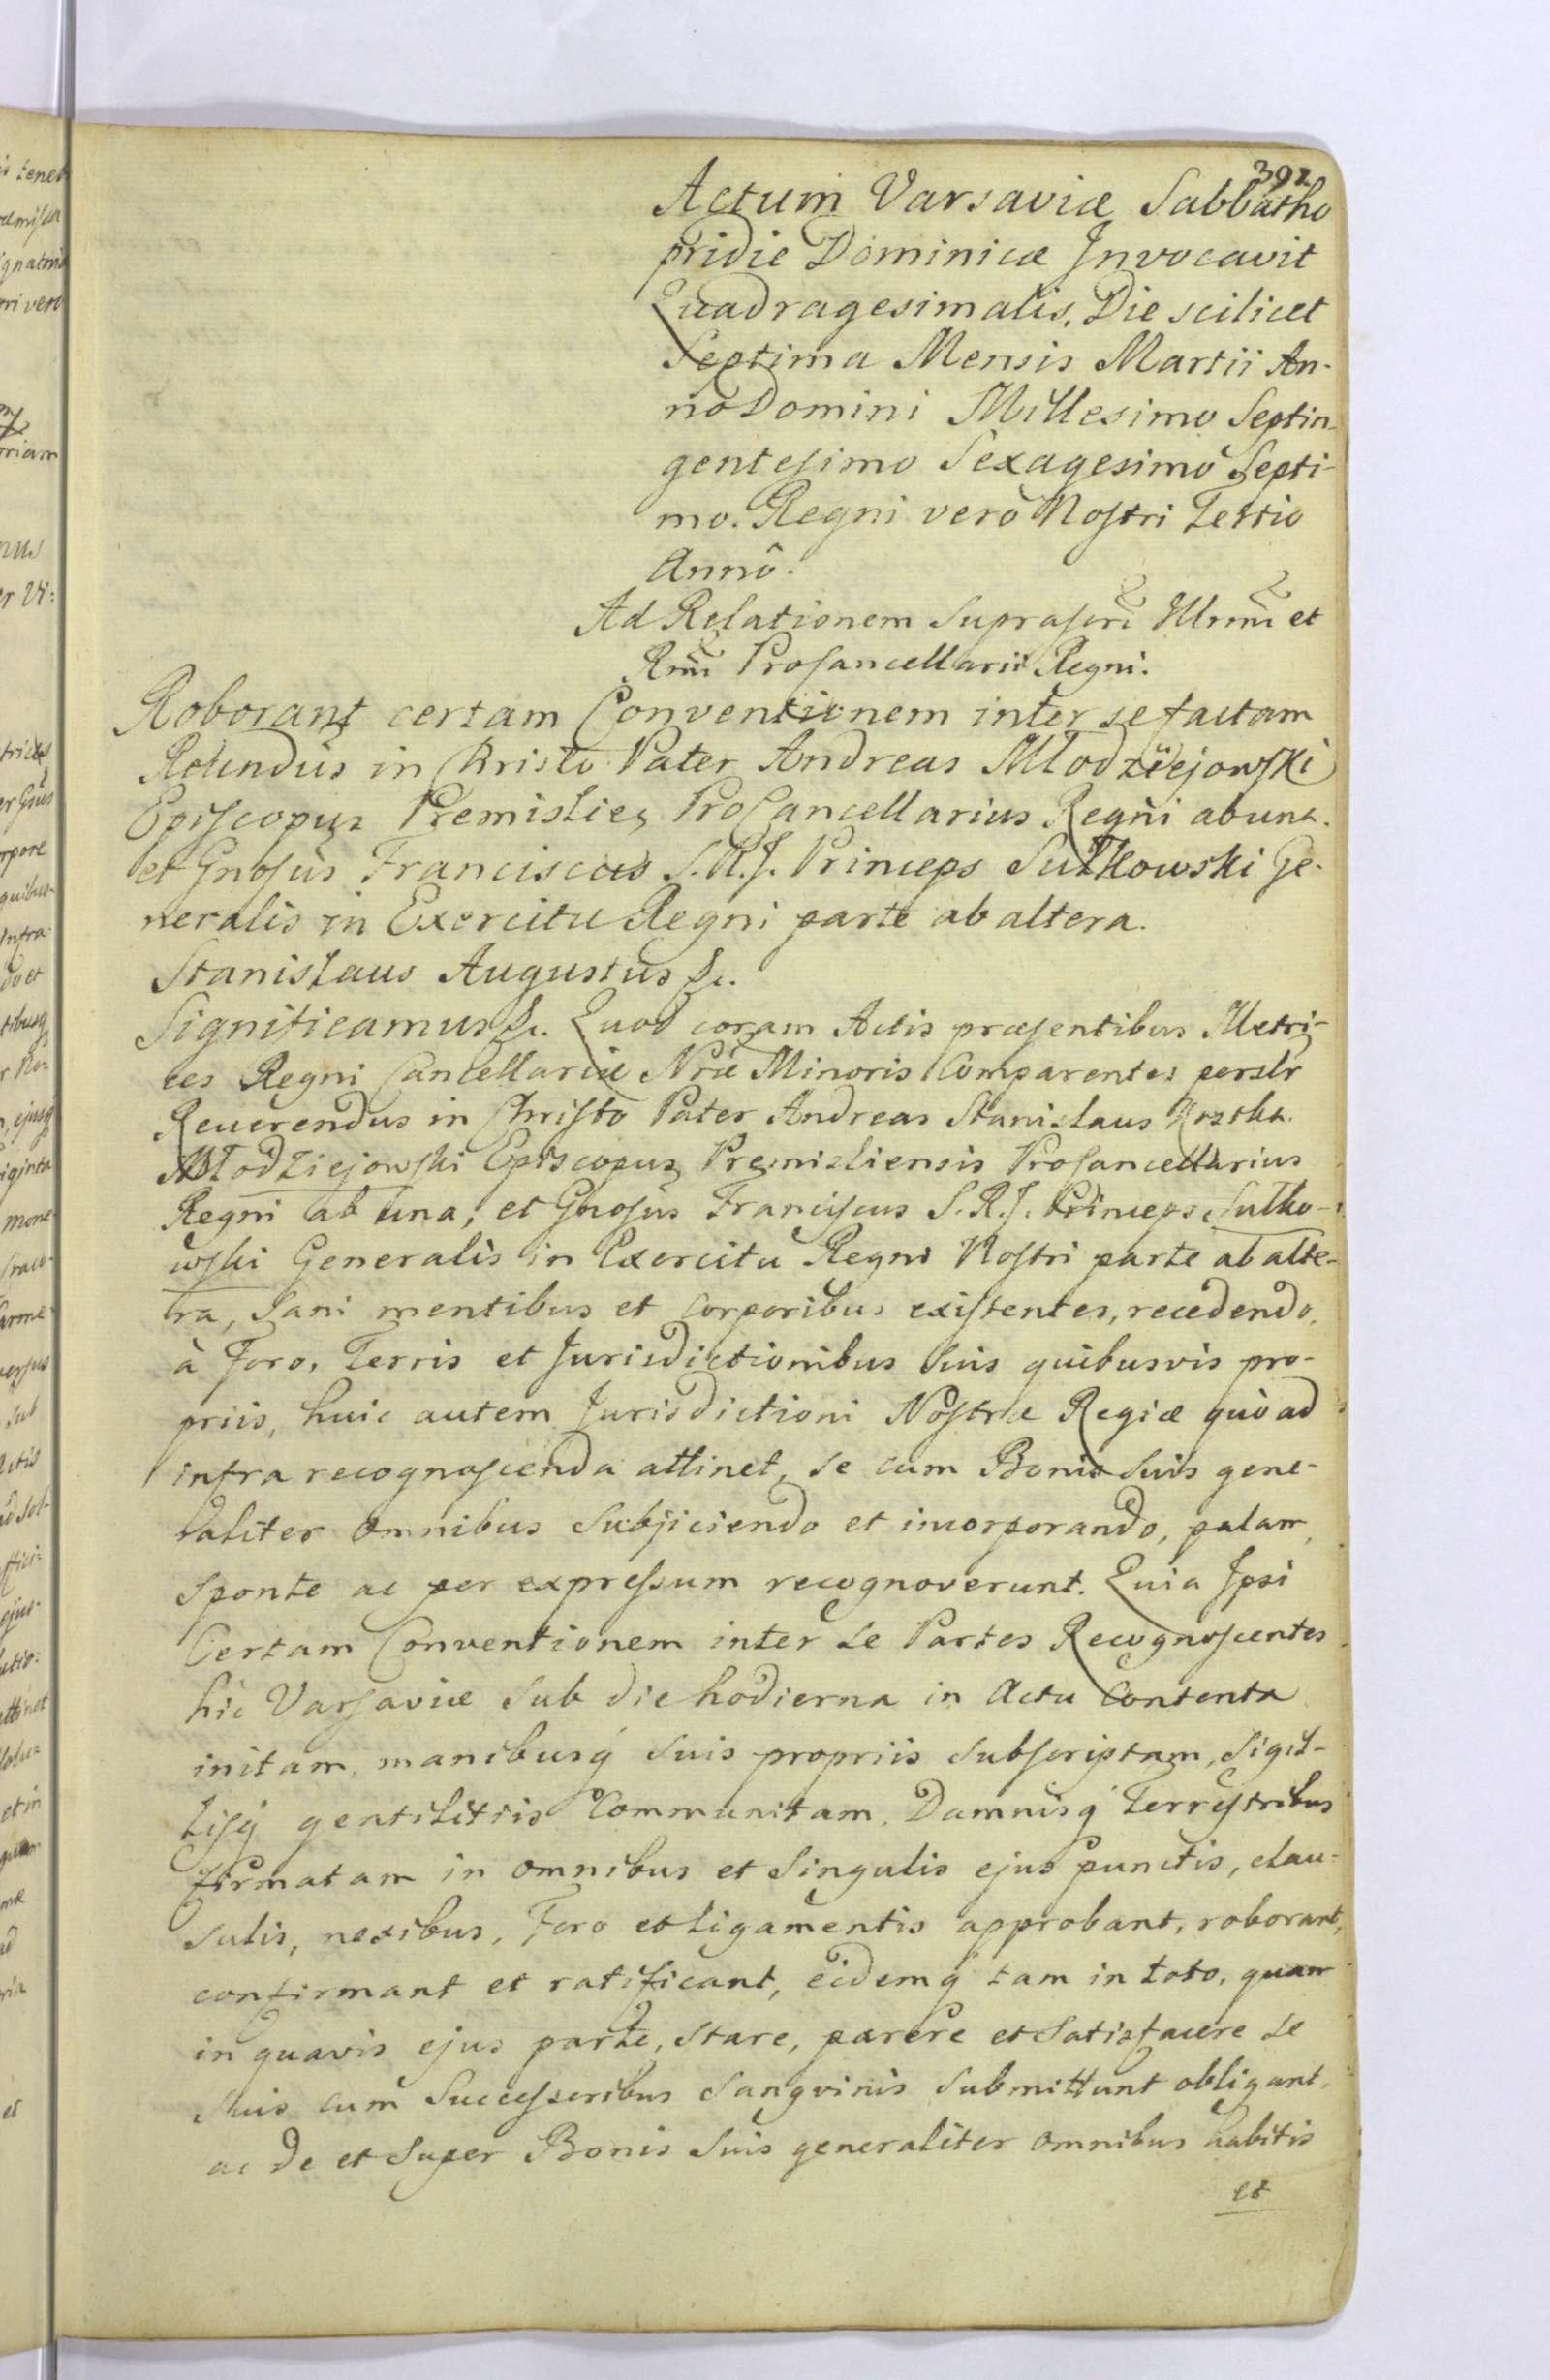 392
Actum Varsaviæ Sabbatho
pridie Dominicæ Invocavit
Quadragesimalis, Die scilicet
Septima Mensis Martii An-
no Domini Millesimo Septin-
gentesimo Sexagesimo Septi-
mo. Regni verò Nostri Tertio
Annô.
Ad Relationem Suprascri Illrmi et
Rmi Procancellarii Regni.
Roborant certam Conventionem inter se factam
Rdendus in Christo Pater Andreas Młodziejowski
Episcopus Premislies Procancellarius Regni ab una.
et Gnosus Franciscus S.R.J. Princeps Sułkowski Ge-
neralis in Exercitu Regni parte ab altera.
Stanislaus Augustus &c.
Significamus &c. Quod coram Actis præsentibus Metri-
ces Regni Cancellariæ Nræ Minoris Comparentes perslr
Reverendus in Christo Pater Andreas Stanislaus Kostka
Młodziejowski Episcopus Premisliensis Procancellarius
Regni ab una, et Gnosus Franciscus S.R.J. Princeps Sułko-
wski Generalis in Exercitu Regni Nostri parte ab alte-
ra, Sani mentibus et Corporibus existentes, recedendo
à Foro, Terris et Jurisdictionibus Suis quibusvis pro-
priis, huic autem Jurisdictioni Nostræ Regiæ quò ad
infra recognoscenda attinet, se cum Bonis Suis gene-
raliter omnibus Subjiciendo et incorporando, palam,
Sponte ac per expressum recognoverunt. Quia Ipsi
Certam Conventionem inter Se Partes Recognoscentes
hic Varsaviæ Sub die hodierna in Actu Contenta
initam, manibusq́ Suis propriis Subscriptam, Sigil-
lisq́ gentilitiis Communitam, Damnisq́ Terrestribus
firmatam in omnibus et Singulis ejus punctis, clau-
sulis, nexibus, Foro et ligamentis approbant, roborant,
confirmant et ratificant, eidemq́ tam in toto, quam
in quavis ejus parte, Stare, parere et Satisfacere Se
Suis cum Successoribus Sangvinis Submittunt obligant,
ac de et Super Bonis Suis generaliter omnibus habitis
et